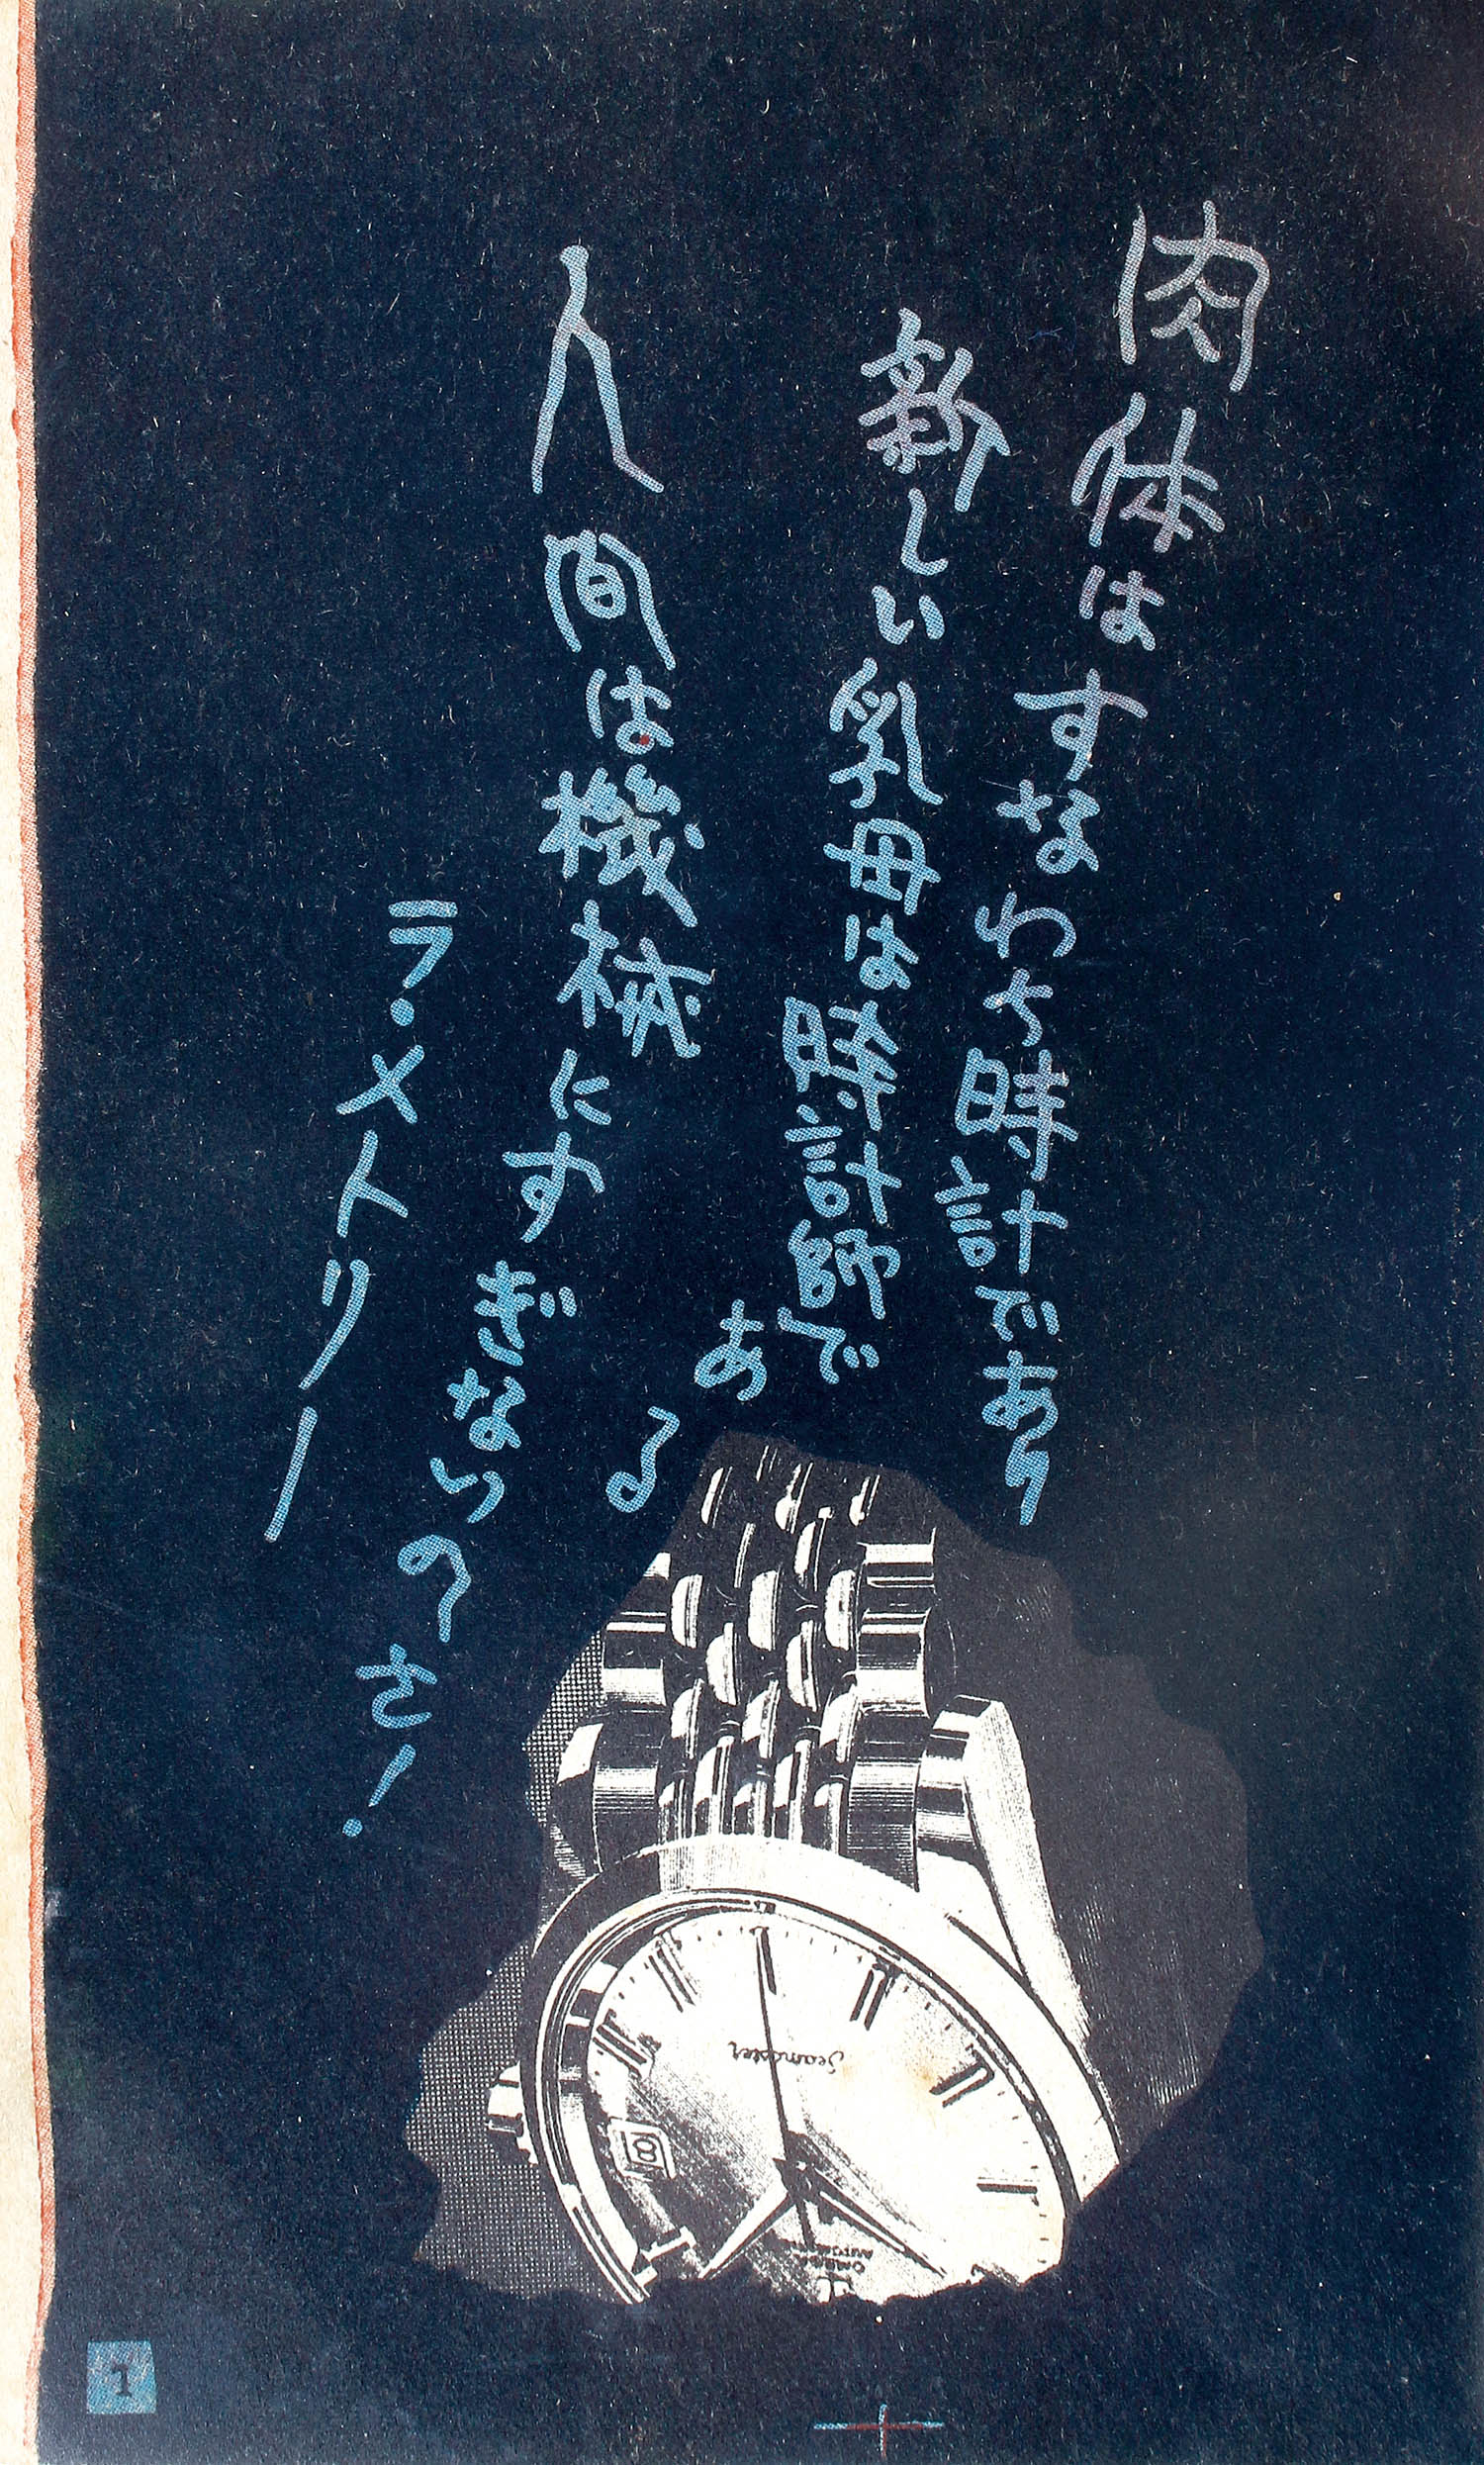 肉体はすなわち時計であり
新しい乳母は時計師である
人間は機械にすぎないのさ!
ラ・メトリー
Seamaster
8
OMEGA
AUTOMATIC
1